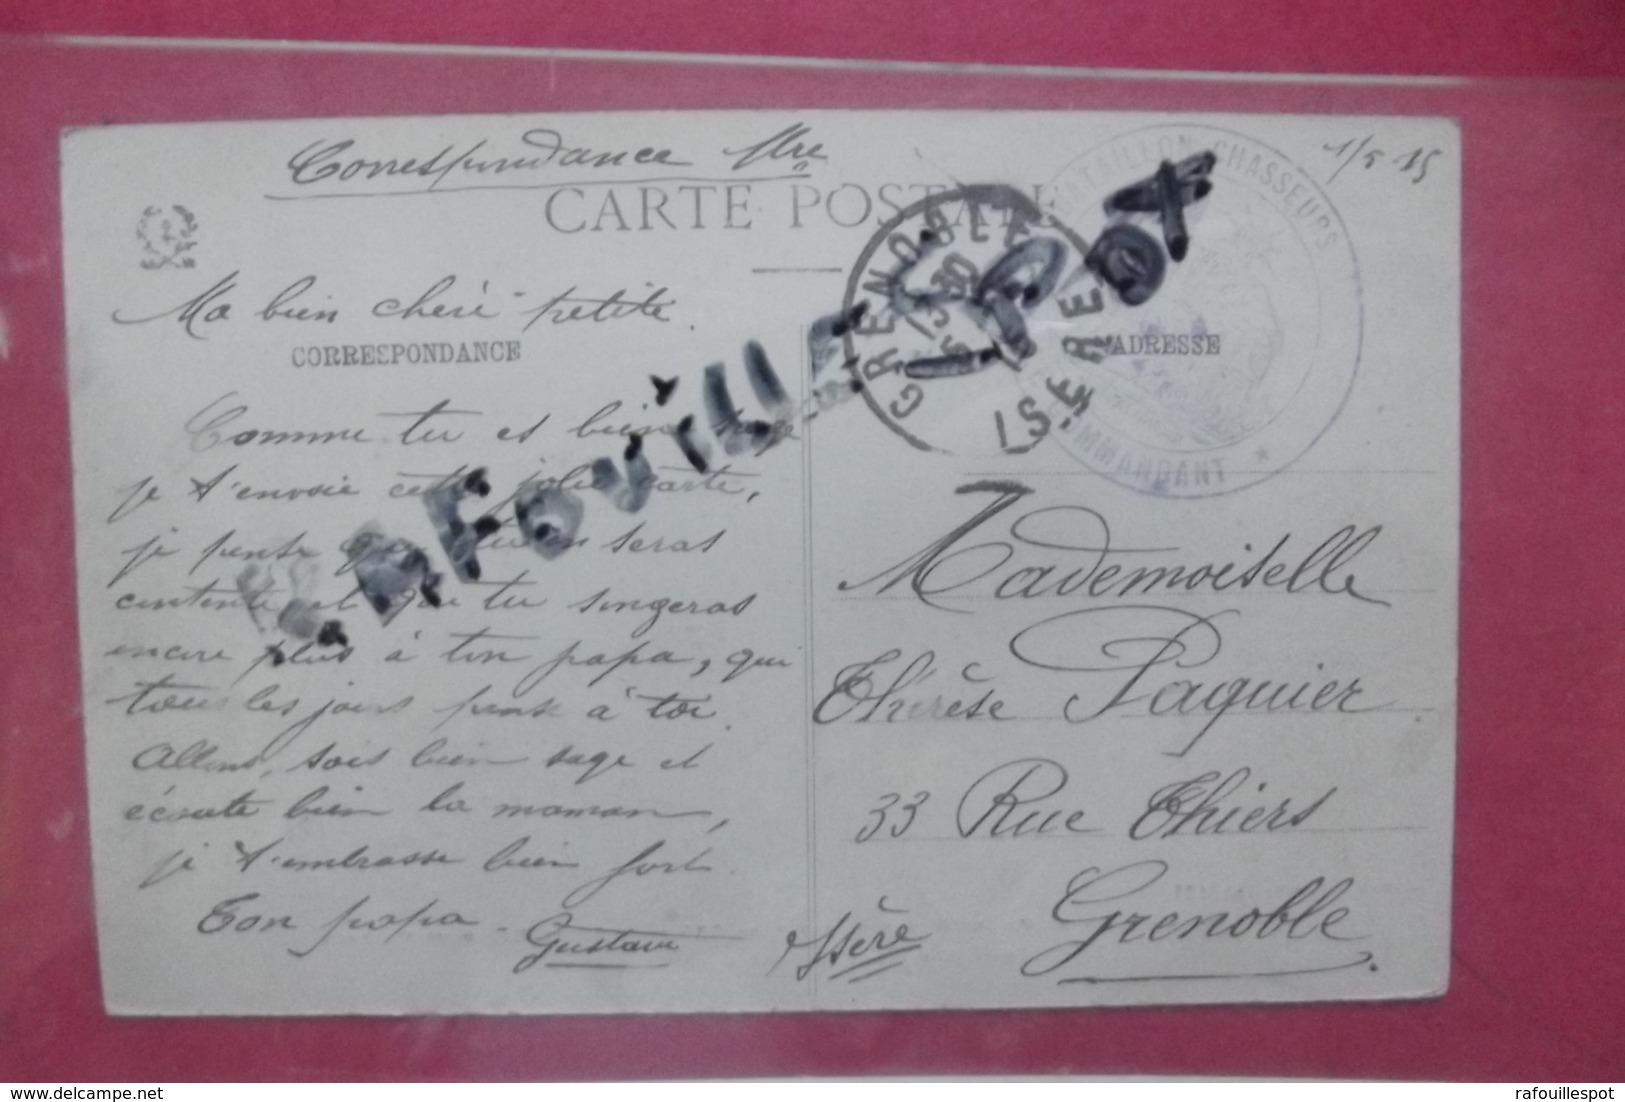 Correspondance Mre
1/5 15
CARTE POSTALE
BATAILLON CHASSEURS
COMMANDANT
GRENOBLE
ISERE
RAFOUILLE
Ma bien chéri petite.
CORRESPONDANCE
ADRESSE
Comme tu es bien sage
je t'envoie cette jolie carte,
je pense que tu en seras
contente et que tu songeras
encore plus à ton papa, qui
tous les jours pense à toi.
Allons, sois bien sage et
écoute bien la maman,
je t'embrasse bien fort.
Ton papa.
Gustave
Mademoiselle
Thérèse Paquier.
33 Rue Thiers
Grenoble.
Isère
rafouillespot